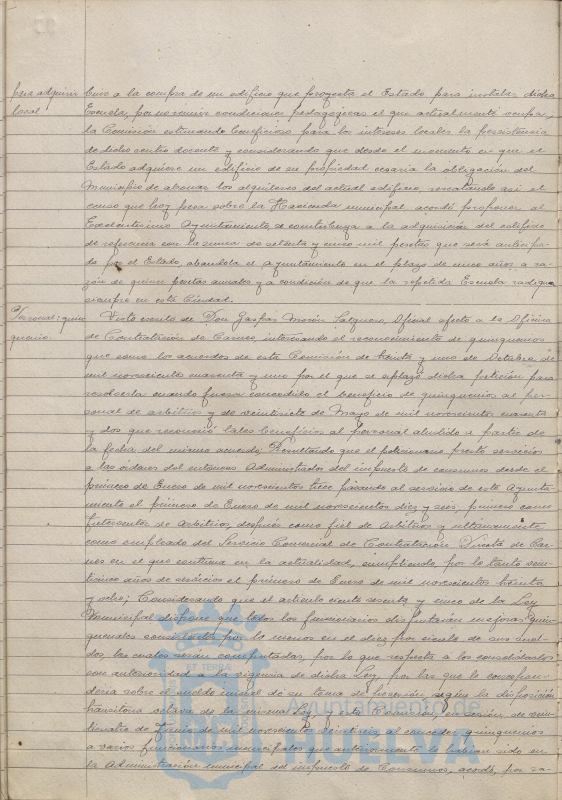 para adquirir
local
buir a la compra de un edificio que proyecta el Estado para instalar dicha
Escuela, por no reunir condiciones pedagógicas el que actualmente ocupa,
la Comisión estimando beneficioso para los intereses locales la persistencia
de dicho centro docente y considerando que desde el momento en que el
Estado adquiere un edificio de su propiedad cesaría la obligación del
Municipio de abonar los alquileres del actual edificio, rescatando así el
censo que hoy pesa sobre la Hacienda municipal acordó proponer al
Excelentísimo Ayuntamiento, se contribuya a la adquisición del edificio
de referencia con la suma de setenta y cinco mil pesetas que será anticipa-
da por el Estado abonándola el Ayuntamiento en el plazo de cinco años a ra-
zón de quince pesetas anuales y a condición de que la repetida Escuela radique
siempre en esta Ciudad.
Personal: quin
quenio.
Visto escrito de Don Gaspar Morón Salguero, Oficial afecto a la Oficina
de Contratación de Carnes, interesando el reconocimiento de quinquenios
que como los acuerdos de esta Comisión de treinta y uno de Octubre de
mil novecientos cuarenta y uno por el que se aplazó dicha petición para
resolverla cuando fuera concedido el beneficio de quinquenios al per-
sonal de arbitrios y de veintisiete de Mayo de mil novecientos cuarenta
y dos que reconoció tales beneficios al personal aludido a partir de
la fecha del mismo acuerdo; Resultando que el peticionario prestó servicios
a las órdenes del entonces Administrador del impuesto de consumos desde el
primero de Enero de mil novecientos trece pasando al servicio de este Ayunta-
miento el primero de Enero de mil novecientos diez y seis, primero como
Interventor de Arbitrios, después como fiel de Arbitrios y últimamente
como empleado del Servicio Comercial de Contratación Directa de Car-
nes en el que continua en la actualidad, cumpliendo por lo tanto vein-
ticinco años de servicios el primero de Enero de mil novecientos treinta
y ocho; Considerando que el artículo ciento sesenta y cinco de la Ley
Municipal dispone que todos los funcionarios disfrutarán mejoras quin-
quenales consistentes por lo menos en el diez por ciento de sus suel-
dos, las cuales serán computadas, por lo que respecta a los consolidados
con anterioridad a la vigencia de dicha Ley, por las que le correspon-
dería sobre el sueldo inicial de su toma de posesión, según la disposición
transitoria octava de la misma Ley, y esta Comisión, en sesión de vein-
ticuatro de Junio de mil novecientos veintiseis, al conceder quinquenios
a varios funcionarios municipales que anteriormente lo habían sido en
la Administración municipal del impuesto de Consumos, acordó, por ra-
Ayuntamiento de
HUELVA